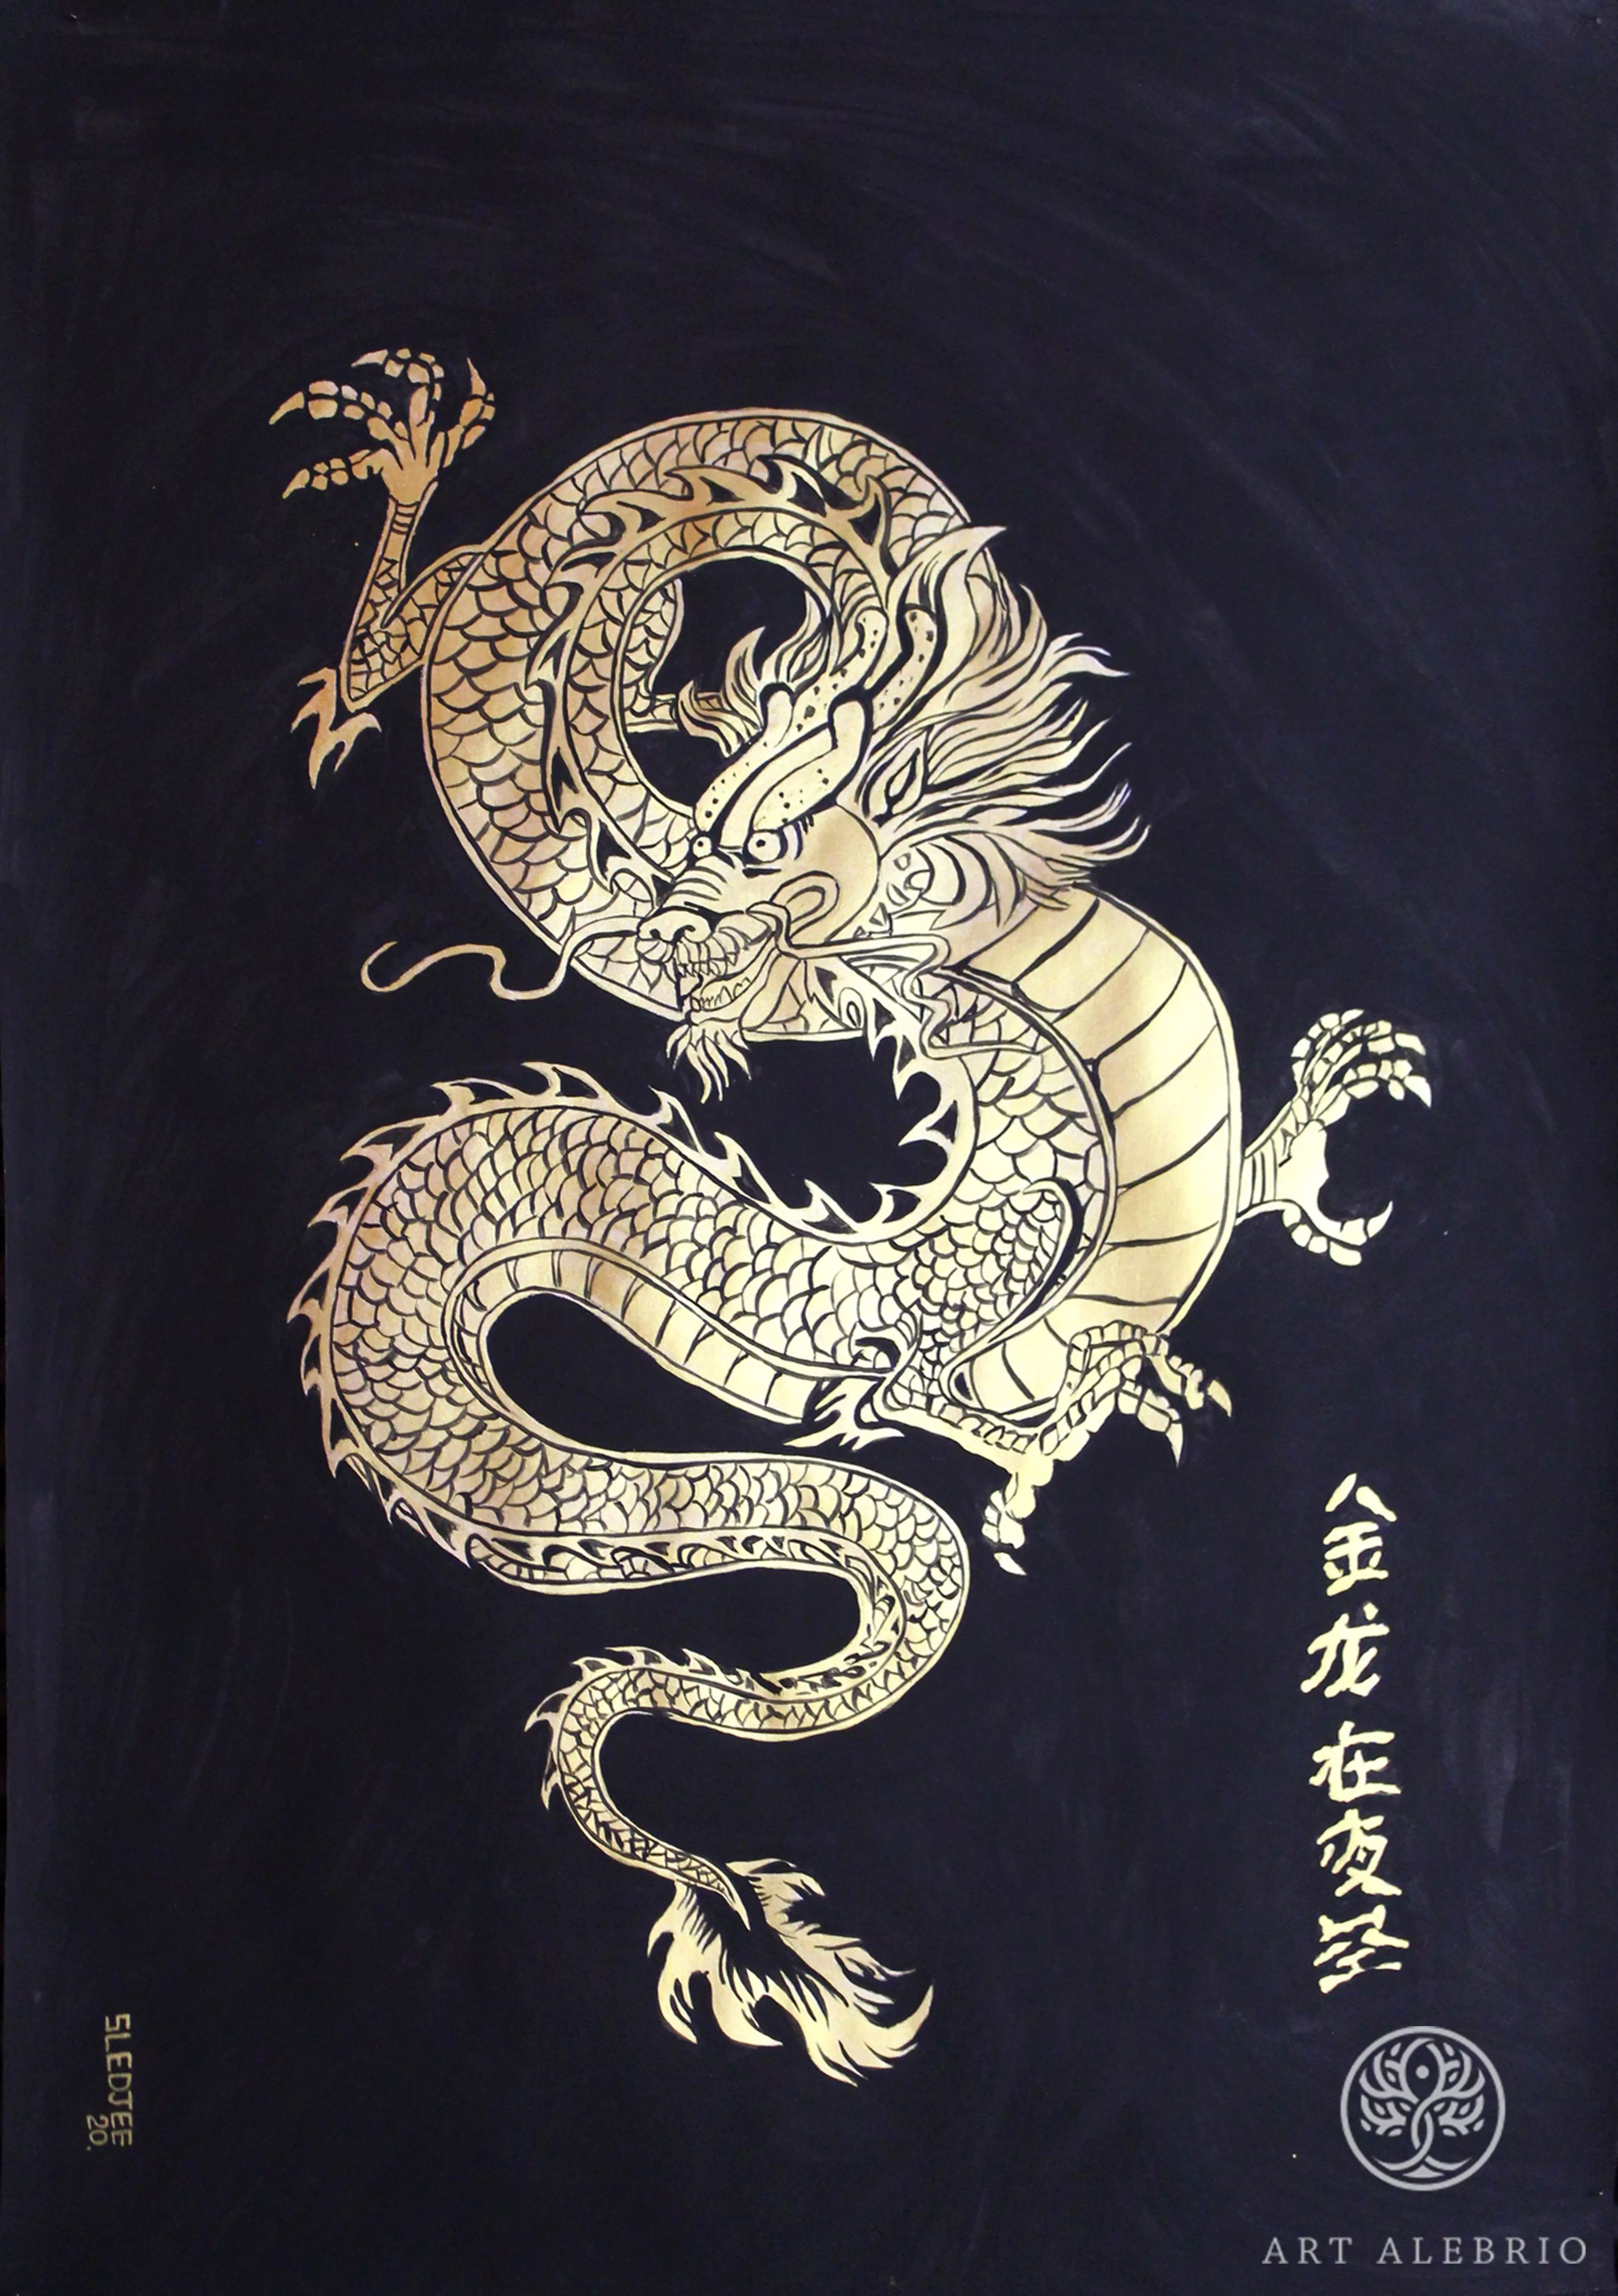 金龙在夜空
SLEDJEE
20.
ART ALEBRIO